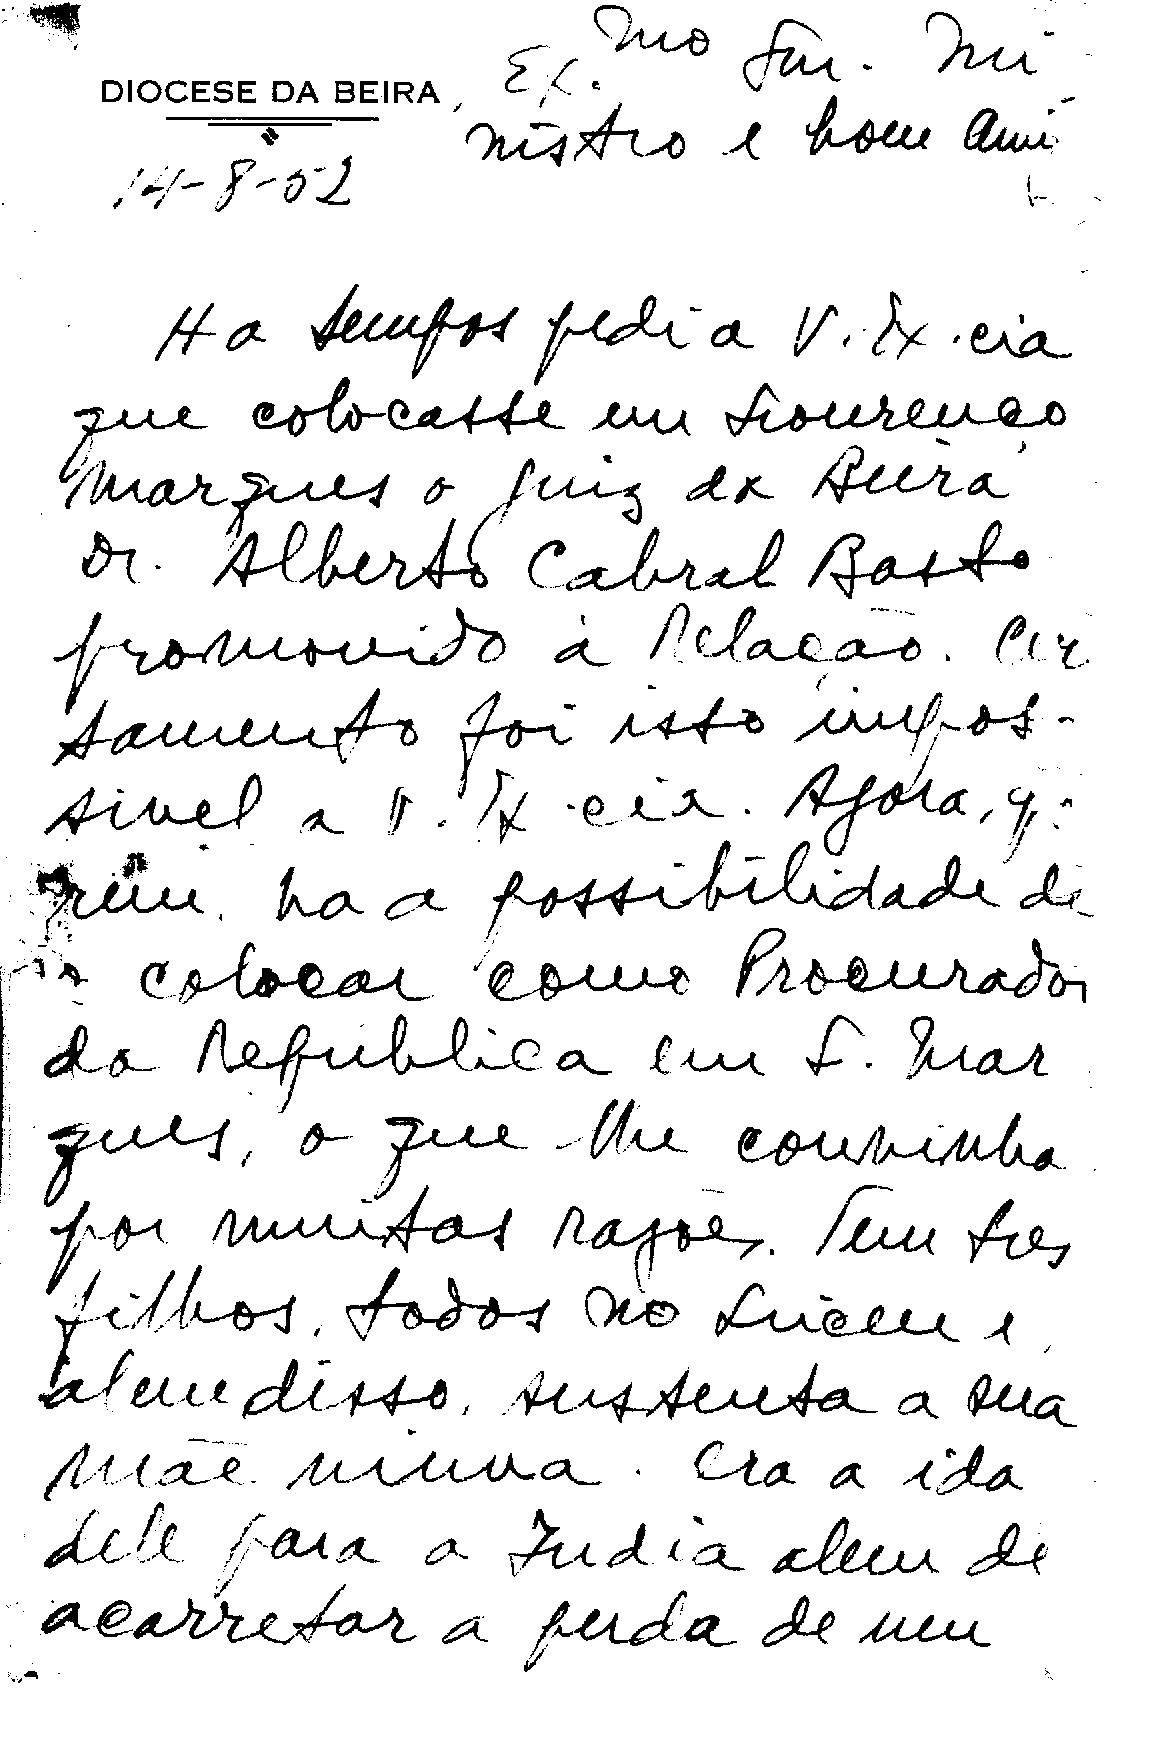 DIOCESE DA BEIRA
14-8-52
Ex.mo Snr. Mi
nistro e bom Ami
Ha tempos pedi a V. Ex.cia
que colocasse em Lourenço
Marques o juiz da Beira
Dr. Alberto Cabral Basto
promovido á Relação. Cer
tamente foi isso impos-
sivel a V. Ex.cia. Agora,
rem, ha a possibilidade de
o colocar como Procurador
da República em L. Mar
ques, o que lhe convinha
por muitas razões. Tem tres
filhos, todos no Liceu e
alem disso, sustenta a sua
mãe viuva. Ora a ida
dele para a India alem de
acarretar a perda de um